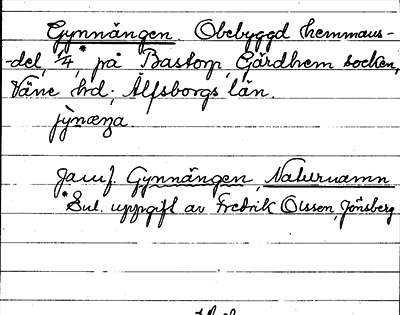 Gynnängen. Obebyggd hemmans-
-del, 1/4,* på Bastorp, Gärdhem socken,
Väne hd; Älfsborgs län.
jỳnæŋa.
Jämf. Gynnängen, Naturnamn
*Enl. uppgift av Fredrik Olsson, Jönsberg